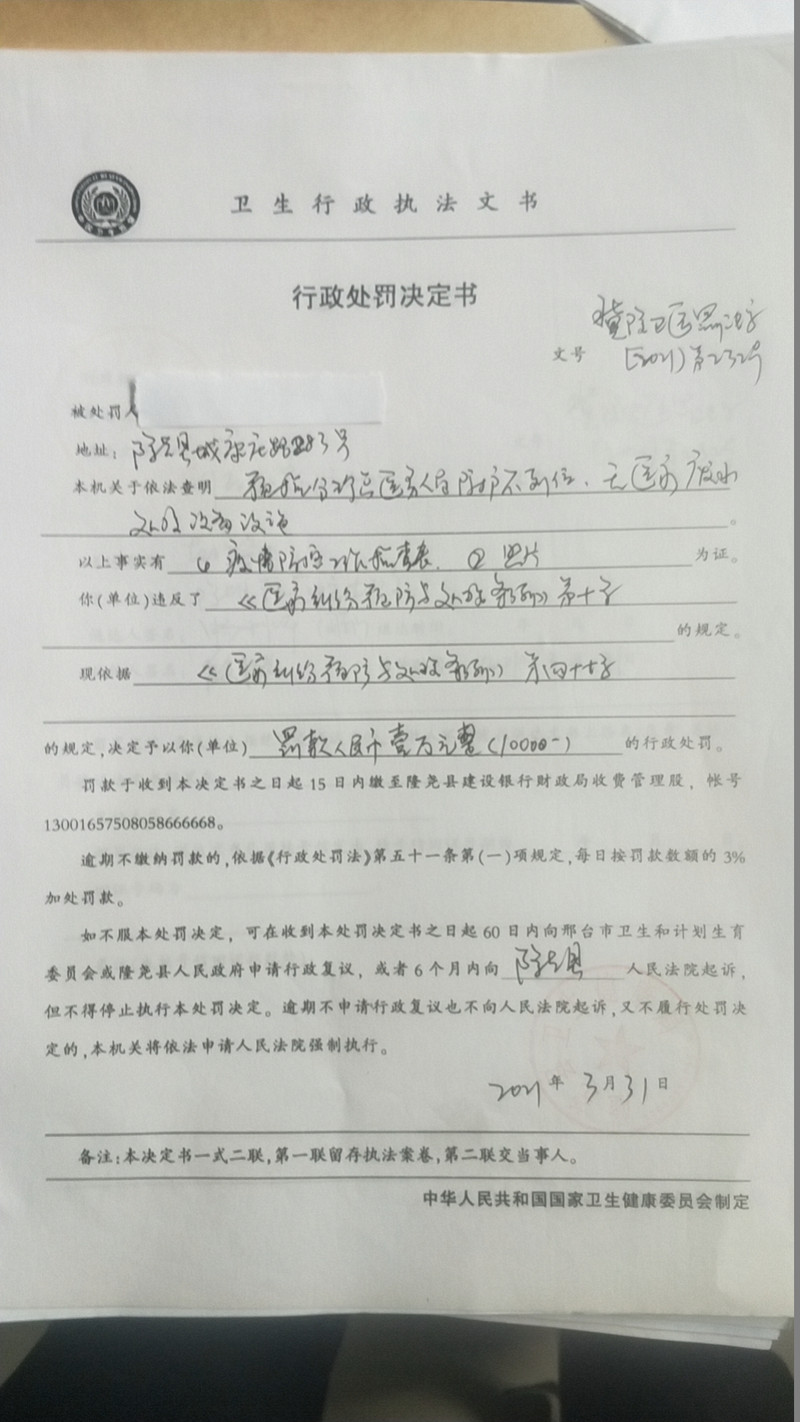 卫生行政执法文书
行政处罚决定书
文号 [2021)第232号
被处罚人
地址：隆尧县城康庄路283号
本机关于依法查明 预检分诊台医务人员防护不到位、无医疗废水
处理设施。
以上事实有 ① 疫情防控工作检查表、② 照片 为证。
你(单位)违反了 《医疗纠纷预防与处理条例》第十条
的规定。
现依据 《医疗纠纷预防与处理条例》第四十七条
的规定,决定予以你(单位) 罚款人民币壹万元整(10000-) 的行政处罚。
罚款于收到本决定书之日起 15 日内缴至隆尧县建设银行财政局收费管理股，帐号
13001657508058666668。
逾期不缴纳罚款的,依据《行政处罚法》第五十一条第(一)项规定,每日按罚款数额的 3%
加处罚款。
如不服本处罚决定，可在收到本处罚决定书之日起 60 日内向邢台市卫生和计划生育
委员会或隆尧县人民政府申请行政复议，或者 6 个月内向 隆尧县 人民法院起诉，
但不得停止执行本处罚决定。逾期不申请行政复议也不向人民法院起诉,又不履行处罚决
定的,本机关将依法申请人民法院强制执行。
2021年 3月31日
备注:本决定书一式二联,第一联留存执法案卷,第二联交当事人。
中华人民共和国国家卫生健康委员会制定